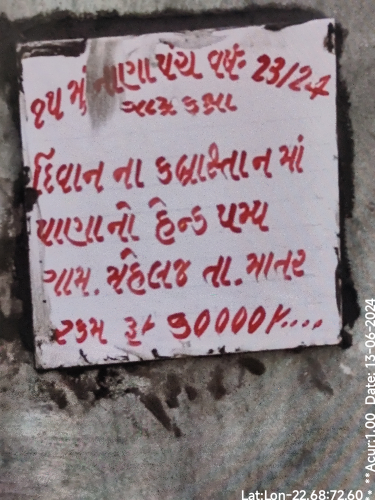 ૧૫ માં નાણા પંચ વર્ષ- 23/24
ગ્રામ કક્ષા
દિવાન ના કબ્રાસ્તાન માં
પાણાનો હેન્ડ પમ્પ
ગામ. મહેલજ તા. માતર
રકમ રૂ/- 90000/-....
**Acur:1.00 Date: 13-06-2024
Lat:Lon-22.68:72.60